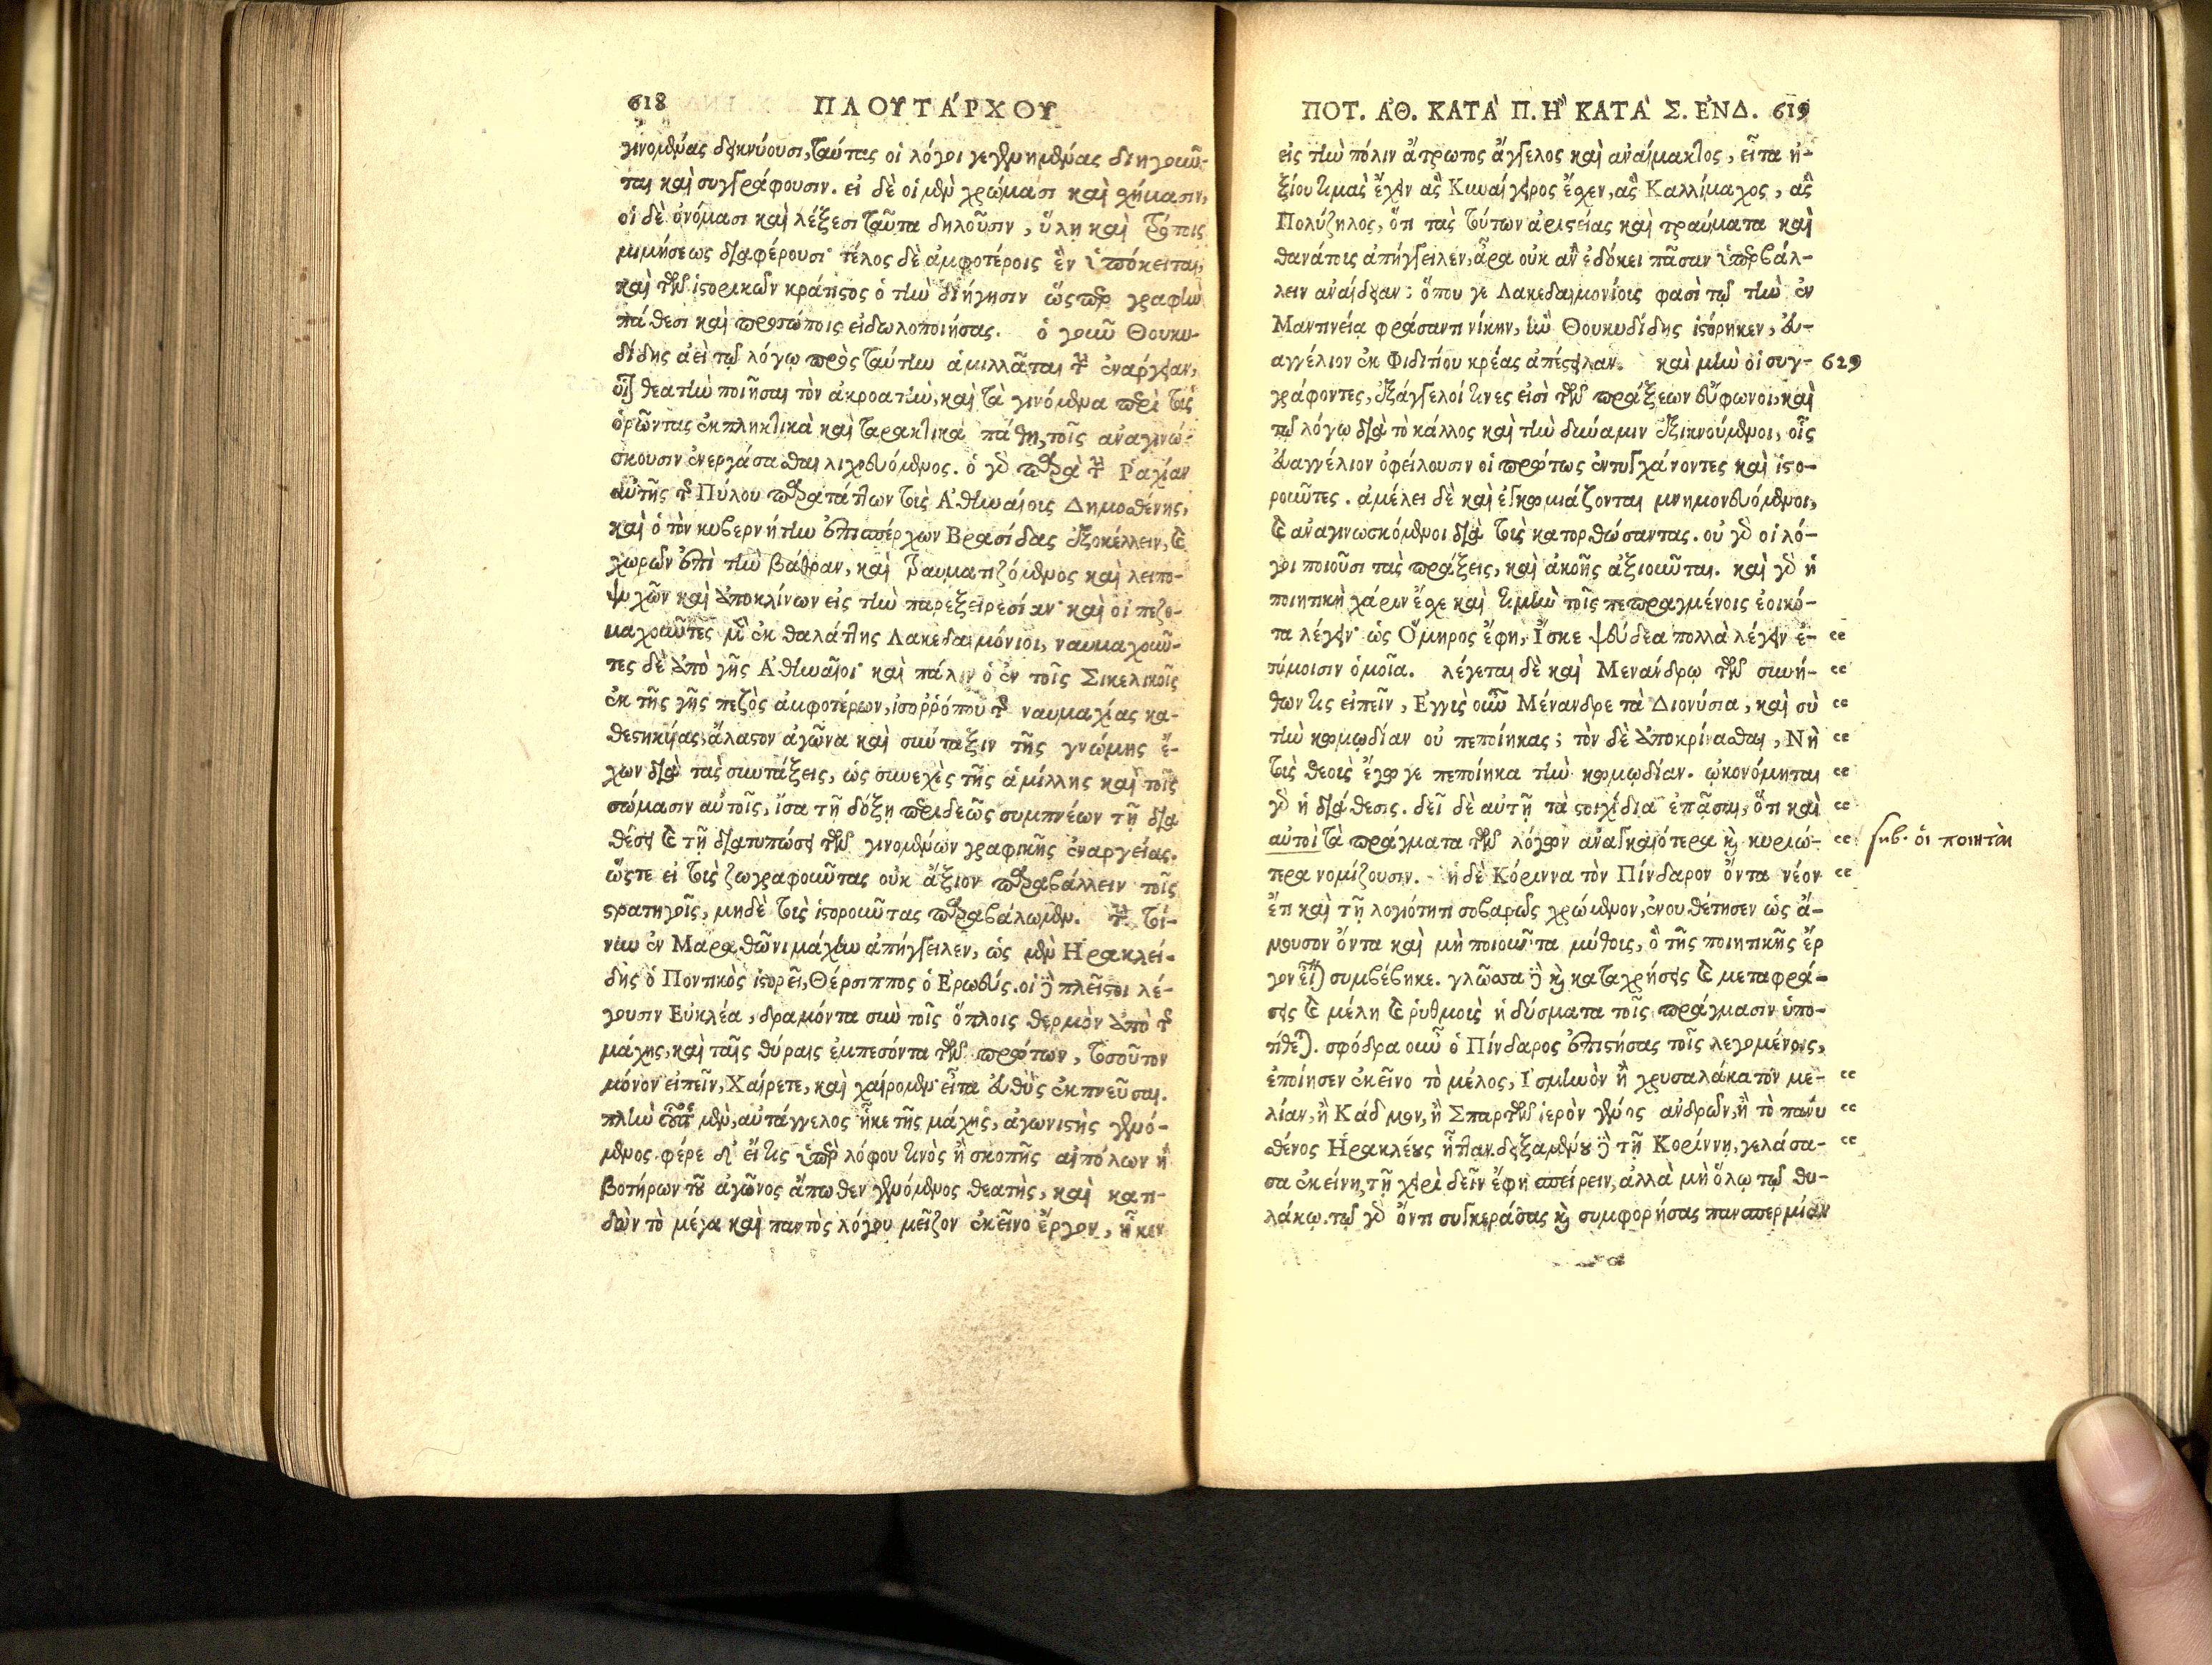 618 ΠΛΟΥΤΆΡΧΟΥ
γινομένας δεικνύουσι, ταύτας οἱ λόγοι γεγενημένας διηγοῦν-
ται καὶ συγγράφουσιν. εἰ δὲ οἱ μὲν χρώμασι καὶ χήμασιν,
οἱ δὲ ὀνόμασι καὶ λέξεσι ταῦτα δηλοῦσιν, ὕλη καὶ τρόποις
μιμήσεως διαφέρουσι· τέλος δὲ ἀμφοτέροις ἓν ὑπόκειται,
καὶ τῶν ἱστορικῶν κράτιστος ὁ τὴν διήγησιν ὥσπερ γραφὴν
πάθεσι καὶ προσώποις εἰδωλοποιήσας. ὁ γοῦν Θουκυ-
δίδης ἀεὶ τῷ λόγῳ πρὸς ταύτην ἁμιλλᾶται τὴν ἐνάργειαν,
οἷον θεατὴν ποιῆσαι τὸν ἀκροατὴν, καὶ τὰ γινόμενα περὶ τοὺς
ὁρῶντας ἐκπληκτικὰ καὶ ταρακτικὰ πάθη τοῖς ἀναγινώ-
σκουσιν ἐνεργάσασθαι λιχνευόμενος. ὁ γὰρ παρὰ τὴν Ῥαχίαν
αὐτῆς τῆς Πύλου παρατάττων τοὺς Ἀθηναίους Δημοσθένης,
καὶ ὁ τὸν κυβερνήτην ἐπισπέρχων Βρασίδας ἐξοκέλλειν, καὶ
χωρῶν ἐπὶ τὴν βάθραν, καὶ τραυματιζόμενος καὶ λειπο-
ψυχῶν καὶ ἀποκλίνων εἰς τὴν παρεξειρεσίαν· καὶ οἱ πεζο-
μαχοῦντες μὲν ἐκ θαλάττης Λακεδαιμόνιοι, ναυμαχοῦν-
τες δὲ ἀπὸ γῆς Ἀθηναῖοι· καὶ πάλιν ὁ ἐν τοῖς Σικελικοῖς
ἐκ τῆς γῆς πεζὸς ἀμφοτέρων, ἰσορρόπου τῆς ναυμαχίας κα-
θεστηκυίας, ἄλαστον ἀγῶνα καὶ σύνταξιν τῆς γνώμης ἔ-
χων διὰ τὰς συντάξεις, ὡς συνεχὲς τῆς ἁμίλλης καὶ τοῖς
σώμασιν αὐτοῖς, ἴσα τῇ δόξῃ περιδεῶς συμπνέων τῇ δια
θέσει καὶ τῇ διατυπώσει τῶν γινομένων γραφικῆς ἐναργείας.
ὥστε εἰ τοὺς ζωγραφοῦντας οὐκ ἄξιον παραβάλλειν τοῖς
στρατηγοῖς, μηδὲ τοὺς ἱστοροῦντας παραβάλωμεν. τὴν τοί-
νυν ἐν Μαραθῶνι μάχην ἀπήγγειλεν, ὡς μὲν Ἡρακλεί-
δης ὁ Ποντικὸς ἱστορεῖ, Θέρσιππος ὁ Ἐρωεύς. οἱ δὲ πλεῖστοι λέ-
γουσιν Εὐκλέα, δραμόντα σὺν τοῖς ὅπλοις θερμὸν ἀπὸ τῆς
μάχης, καὶ ταῖς θύραις ἐμπεσόντα τῶν πρώτων, τοσοῦτον
μόνον εἰπεῖν, Χαίρετε, καὶ χαίρομεν· εἶτα εὐθὺς ἐκπνεῦσαι.
πλὴν οὗτος μὲν, αὐτάγγελος ἧκε τῆς μάχης, ἀγωνιστὴς γενό-
μενος. φέρε δ' εἴ τις ὑπὲρ λόφου τινὸς ἢ σκοπῆς αἰπόλων ἢ
βοτήρων τοῦ ἀγῶνος ἄπωθεν γενόμενος θεατὴς, καὶ κατι-
δὼν τὸ μέγα καὶ παντὸς λόγου μεῖζον ἐκεῖνο ἔργον, ἧκεν
ΠΟΤ. ἈΘ. ΚΑΤᾺ Π. Ἢ ΚΑΤᾺ Σ. ἘΝΔ. 619
εἰς τὴν πόλιν ἄτρωτος ἄγγελος καὶ ἀναίμακτος, εἶτα ἠ-
ξίου τιμὰς ἔχειν ἃς Κυναίγειρος ἔσχεν, ἃς Καλλίμαχος, ἃς
Πολύζηλος, ὅτι τὰς τούτων ἀριστείας καὶ τραύματα καὶ
θανάτους ἀπήγγειλεν, ἆρα οὐκ ἂν ἐδόκει πᾶσαν ὑπερβάλ-
λειν ἀναίδειαν; ὅπου γε Λακεδαιμονίους φασὶ τῷ τὴν ἐν
Μαντινείᾳ φράσαντι νίκην, ἣν Θουκυδίδης ἱστόρηκεν, εὐ-
αγγέλιον ἐκ Φιδιτίου κρέας ἀπέστειλαν. καὶ μὴν οἱ συγ- 629
γράφοντες, ἐξάγγελοί τινες εἰσὶ τῶν πράξεων εὔφωνοι, καὶ
τῷ λόγῳ διὰ τὸ κάλλος καὶ τὴν δύναμιν ἐξικνούμενοι, οἷς
εὐαγγέλιον ὀφείλουσιν οἱ πρώτως ἐντυγχάνοντες καὶ ἱστο-
ροῦντες. ἀμέλει δὲ καὶ ἐγκωμιάζονται μνημονευόμενοι,
καὶ ἀναγινωσκόμενοι διὰ τοὺς κατορθώσαντας. οὐ γὰρ οἱ λό-
γοι ποιοῦσι τὰς πράξεις, καὶ ἀκοῆς ἀξιοῦνται. καὶ γὰρ ἡ
ποιητικὴ χάριν ἔσχε καὶ τιμὴν τοῖς πεπραγμένοις ἐοικό-
τα λέγειν· ὡς Ὅμηρος ἔφη, Ἴσκε ψεύδεα πολλὰ λέγειν ἐ- “
τύμοισιν ὁμοῖα. λέγεται δὲ καὶ Μενάνδρῳ τῶν συνή- “
θων τις εἰπεῖν, Ἐγγὺς οὖν Μένανδρε τὰ Διονύσια, καὶ σὺ “
τὴν κωμῳδίαν οὐ πεποίηκας; τὸν δὲ ἀποκρίνασθαι, Νὴ “
τοὺς θεοὺς ἔγωγε πεποίηκα τὴν κωμῳδίαν. ᾠκονόμηται “
γὰρ ἡ διάθεσις. δεῖ δὲ αὐτῇ τὰ στοιχίδια ἐπᾷσαι, ὅτι καὶ “
αὐτοὶ τὰ πράγματα τῶν λόγων ἀναγκαιότερα καὶ κυριώ- “ sub. οἱ ποιηταὶ
τερα νομίζουσιν. ἡ δὲ Κόριννα τὸν Πίνδαρον ὄντα νέον “
ἔτι καὶ τῇ λογιότητι σοβαρῶς χρώμενον, ἐνουθέτησεν ὡς ἄ-
μουσον ὄντα καὶ μὴ ποιοῦντα μύθους, ὃ τῆς ποιητικῆς ἔρ
γον εἶναι συμβέβηκε. γλῶσσα δὲ καὶ καταχρήσεις καὶ μεταφρά-
σεις καὶ μέλη καὶ ῥυθμοὺς ἡδύσματα τοῖς πράγμασιν ὑπο-
τίθεται. σφόδρα οὖν ὁ Πίνδαρος ἐπιστήσας τοῖς λεγομένοις,
ἐποίησεν ἐκεῖνο τὸ μέλος, Ἰσμηνὸν ἢ χρυσαλάκατον με- “
λίαν, ἢ Κάδμον, ἢ Σπαρτῶν ἱερὸν γένος ἀνδρῶν, ἢ τὸ πάνυ “
σθένος Ἡρακλέους ἢ ταν. δειξαμένου δὲ τῇ Κορίννῃ, γελάσα- “
σα ἐκείνη, τῇ χειρὶ δεῖν ἔφη σπείρειν, ἀλλὰ μὴ ὅλῳ τῷ θυ-
λάκῳ. τῷ γὰρ ὄντι συγκεράσας καὶ συμφορήσας πανσπερμίαν